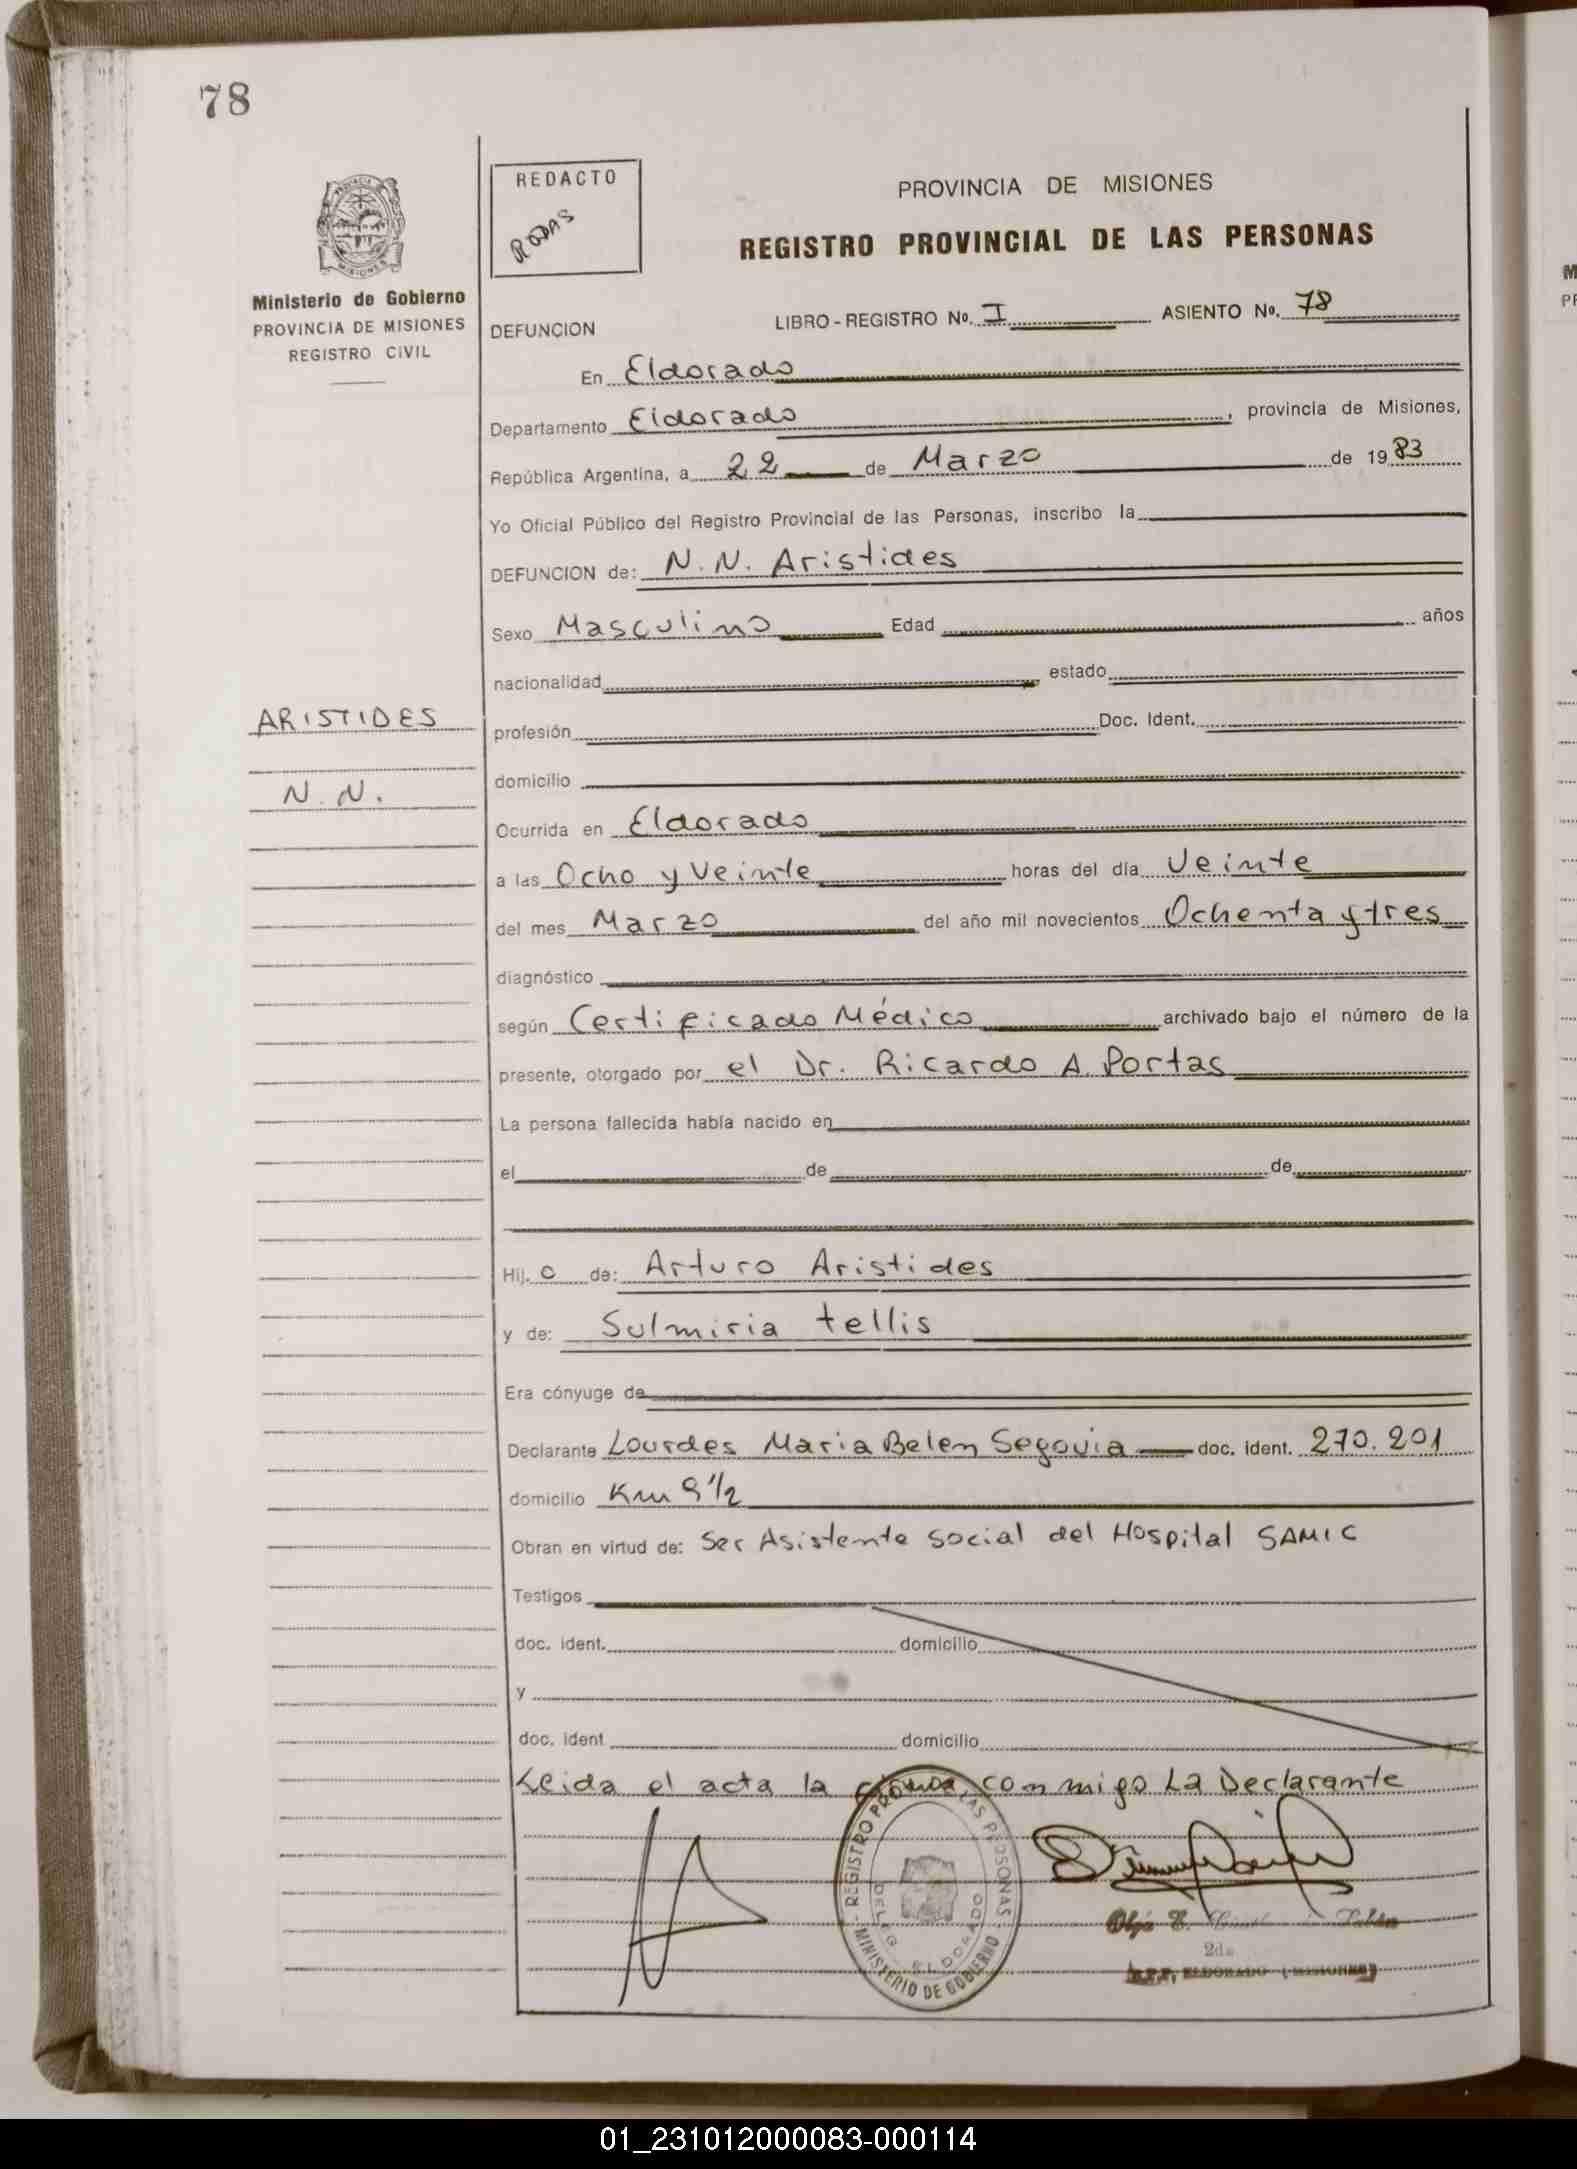 78
REDACTO
RODAS
PROVINCIA DE MISIONES
REGISTRO PROVINCIAL DE LAS PERSONAS
PROVINCIA
MISIONES
Ministerio de Gobierno
PROVINCIA DE MISIONES
REGISTRO CIVIL
DEFUNCION LIBRO - REGISTRO No. I ASIENTO No. 78
En Eldorado
Departamento Eldorado, provincia de Misiones,
República Argentina, a 22 de Marzo de 1983
Yo Oficial Público del Registro Provincial de las Personas, inscribo la
DEFUNCION de: N. N. Aristides
Sexo Masculino Edad años
nacionalidad estado
ARISTIDES
profesión Doc. Ident.
domicilio
N. N.
Ocurrida en Eldorado
a las Ocho y Veinte horas del día Veinte
del mes Marzo del año mil novecientos Ochenta y tres
diagnóstico
según Certificado Médico archivado bajo el número de la
presente, otorgado por el Dr. Ricardo A. Portas
La persona fallecida había nacido en
el de de
Hij. o de: Arturo Aristides
y de: Sulmiria tellis
Era cónyuge de
Declarante Lourdes Maria Belen Segovia doc. ident. 270.201
domicilio Km 9 1/2
Obran en virtud de: Ser Asistente Social del Hospital SAMIC
Testigos
doc. ident. domicilio
y
doc. ident domicilio
Leida el acta la firma conmigo La Declarante
REGISTRO PROVINCIAL DE LAS PERSONAS
DELEG. ELDORADO
MINISTERIO DE GOBIERNO
Olga E.
2da
ELDORADO (MISIONES)
01_231012000083-000114